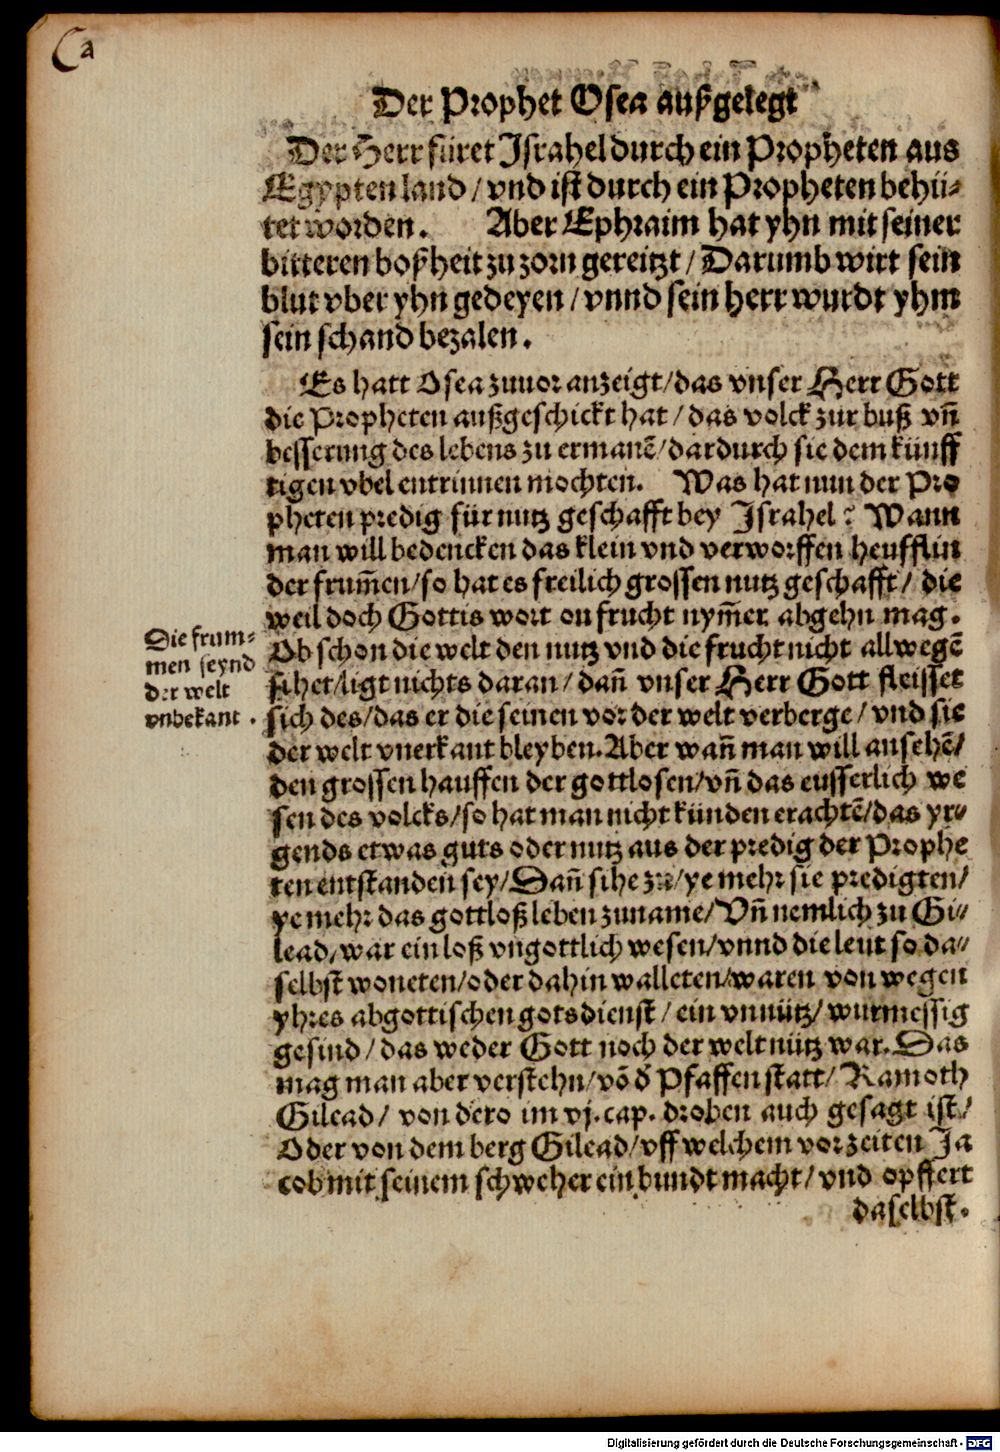 Ca
Der Prophet Osea außgelegt
Der Herr füret Israhel durch ein Propheten aus
Egypten land / vnd ist durch ein Propheten behü⸗
tet worden. Aber Ephraim hat yhn mit seiner
bitteren boßheit zu zorn gereitzt / Darumb wirt sein
blut vber yhn gedeyen / vnnd sein herr wurdt yhm
sein schand bezalen.
Es hatt Osea zuuor anzeigt / das vnser Herr Gott
die Propheten außgeschickt hat / das volck zur buß vñ
besserung des lebens zu ermanẽ / dardurch sie dem künff
tigen vbel entrinnen mochten. Was hat nun der Pro
pheten predig für nutz geschafft bey Israhel? Wann
man will bedencken das klein vnd verworffen heufflin
der frum̃en / so hat es freilich grossen nutz geschafft / die
weil doch Gottis wort on frucht nym̃er abgehn mag.
Die frum⸗
men seynd
der welt
vnbekant.
Ob schon die welt den nutz vnd die frucht nicht allwegẽ
sihet / ligt nichts daran / dañ vnser Herr Gott fleisset
sich des / das er die seinen vor der welt verberge / vnd sie
der welt vnerkant bleyben. Aber wañ man will ansehẽ /
den grossen hauffen der gottlosen / vñ das eusserlich we
sen des volcks / so hat man nicht künden erachtẽ / das yr⸗
gends etwas guts oder nutz aus der predig der Prophe
ten entstanden sey / Dañ sihe zu / ye mehr sie predigten /
ye mehr das gottloß leben zuname / Vñ nemlich zu Gi⸗
lead, war ein loß vngottlich wesen / vnnd die leut so da⸗
selbst woneten / oder dahin walleten / waren von wegen
yhres abgottischen gotsdienst / ein vnnütz / wurmessig
gesind / das weder Gott noch der welt nütz war. Das
mag man aber verstehn / võ d̕ Pfaffen statt / Ramoth
Gilead / von dero im vj. cap. droben auch gesagt ist /
Oder von dem berg Gilead / vff welchem vorzeiten Ja
cob mit seinem schweher ein bundt macht / vnd opffert
daselbst.
Digitalisierung gefördert durch die Deutsche Forschungsgemeinschaft - DFG